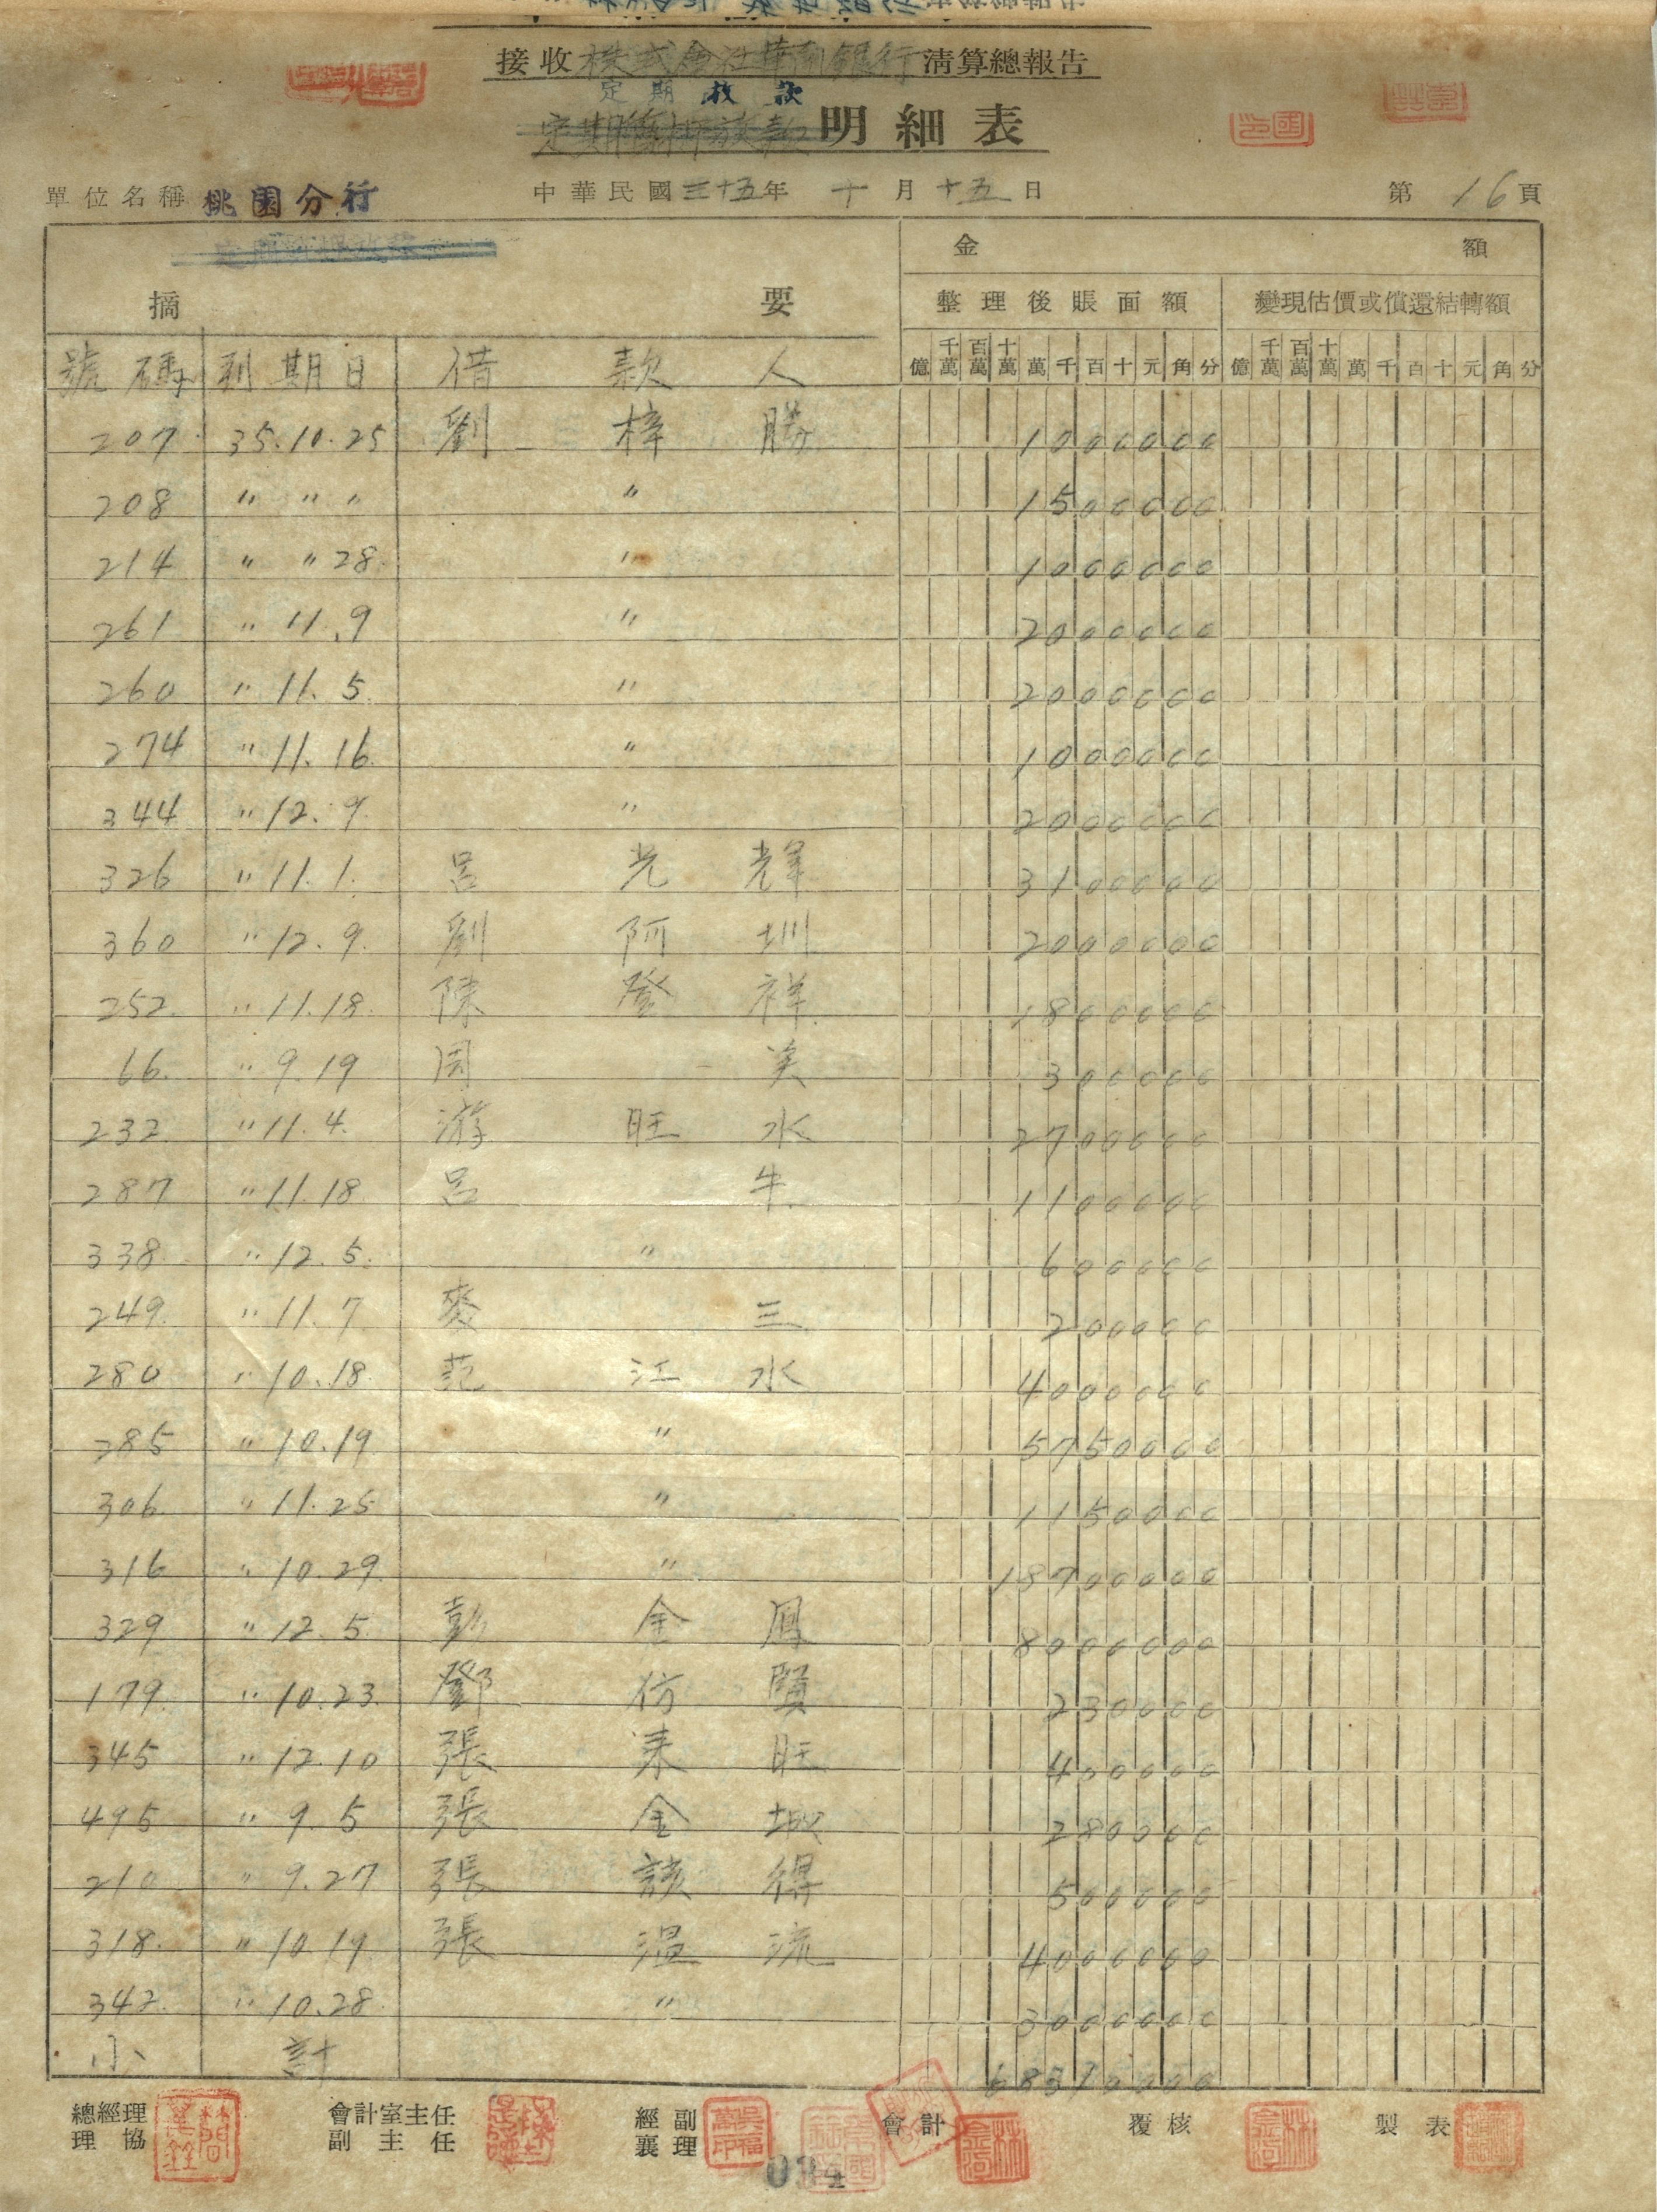 接收株式會社華南銀行清算總報告
定期放款
明細表
單位名稱 桃園分行 中華民國三十五年 十月十五日 第16頁
金額
摘要 整理後賬面額 變現估價或償還結轉額
億 千萬 百萬 十萬 萬 千 百 十 元 角 分 億 千萬 百萬 十萬 萬 千 百 十 元 角 分
號碼 到期日 借款人
207 35.10.25 劉梓勝 1000000
208 〃 〃 〃 〃 1500000
214 〃 〃 28 〃 1000000
261 〃 11.9 〃 2000000
260 〃 11.5 〃 2000000
274 〃 11.16 〃 1000000
344 〃 12.9 〃 2000000
326 〃 11.1 呂光輝 3100000
360 〃 12.9 劉阿圳 2000000
252 〃 11.18 陳登祥 1800000
66 〃 9.19 周美 300000
232 〃 11.4 游旺水 2700000
287 〃 11.18 呂牛 1100000
338 〃 12.5 〃 600000
249 〃 11.7 麥三 200000
280 〃 10.18 范江水 4000000
285 〃 10.19 〃 5750000
306 〃 11.25 〃 1150000
316 〃 10.29 〃 18700000
329 〃 12.5 彭金鳳 8000000
179 〃 10.23 鄧仿賢 230000
345 〃 12.10 張來旺 400000
495 〃 9.5 張金城 280000
210 〃 9.27 張該得 500000
318 〃 10.19 張温流 4000000
342 〃 10.28 〃 3000000
小計
總經理 會計室主任 經副理 會計 覆核 製表
協理 副主任 襄理